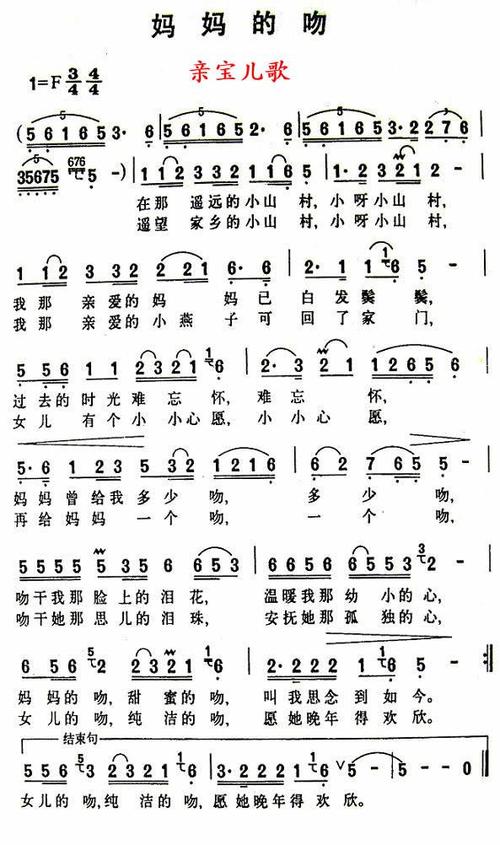 妈妈的吻
亲宝儿歌
1=F 3/4 4/4
(5 6 1 6 5 3· 6 5 6 1 6 5 3 5 6 1 6 5 3·2 2 7 6
3 5 6 7 5 676 5 -) 1 1 2 3 2 3 2 1 1 6 5 1·2 3 2 1 -
在那 遥远的小山 村,小 呀小山 村,
遥望 家乡的小山 村,小 呀小山 村,
1 1 2 3 3 2 3 2 2 1 6·6 2·1 1 1 6 5 -
我那 亲爱的妈 妈已 白发鬓 鬓,
我那 亲爱的小燕 子可 回了家 门,
5 5 6 1 1 2 3 2 1 6 2·3 2 1 1 2 6 5 6
过去的 时光难 忘 怀, 难忘 怀,
女儿 有个小 小心愿, 小小心 愿,
5·6 1 1 2 3 5 3 2 1 2 1 6 6 2 7 6 5 5 -
妈妈曾给我多少 吻, 多 少 吻,
再给妈妈 一个 吻, 一 个 吻,
5 5 5 5 5 3 5 6 6 5 3 6 6 5 6 6 5 6 5 3 2 -
吻干我那脸上的泪花, 温暖我那幼 小的心,
吻干她那思儿的泪珠, 安抚她那孤 独的心,
6 5 6 5 2 2 3 2 1 2·2 2 2 3 1 6 6 -
妈 妈的 吻,甜 蜜的 吻, 叫我思念 到如 今。
女 儿的 吻,纯 洁的 吻, 愿她晚年 得欢 欣。
结束句
5 5 6 5 3 2 2 3 2 1 3·2 2 2 3 1 6 6 ∨ 5 - 5 - 5 0
女儿的 吻,纯 洁的 吻,愿她晚年得欢 欣。